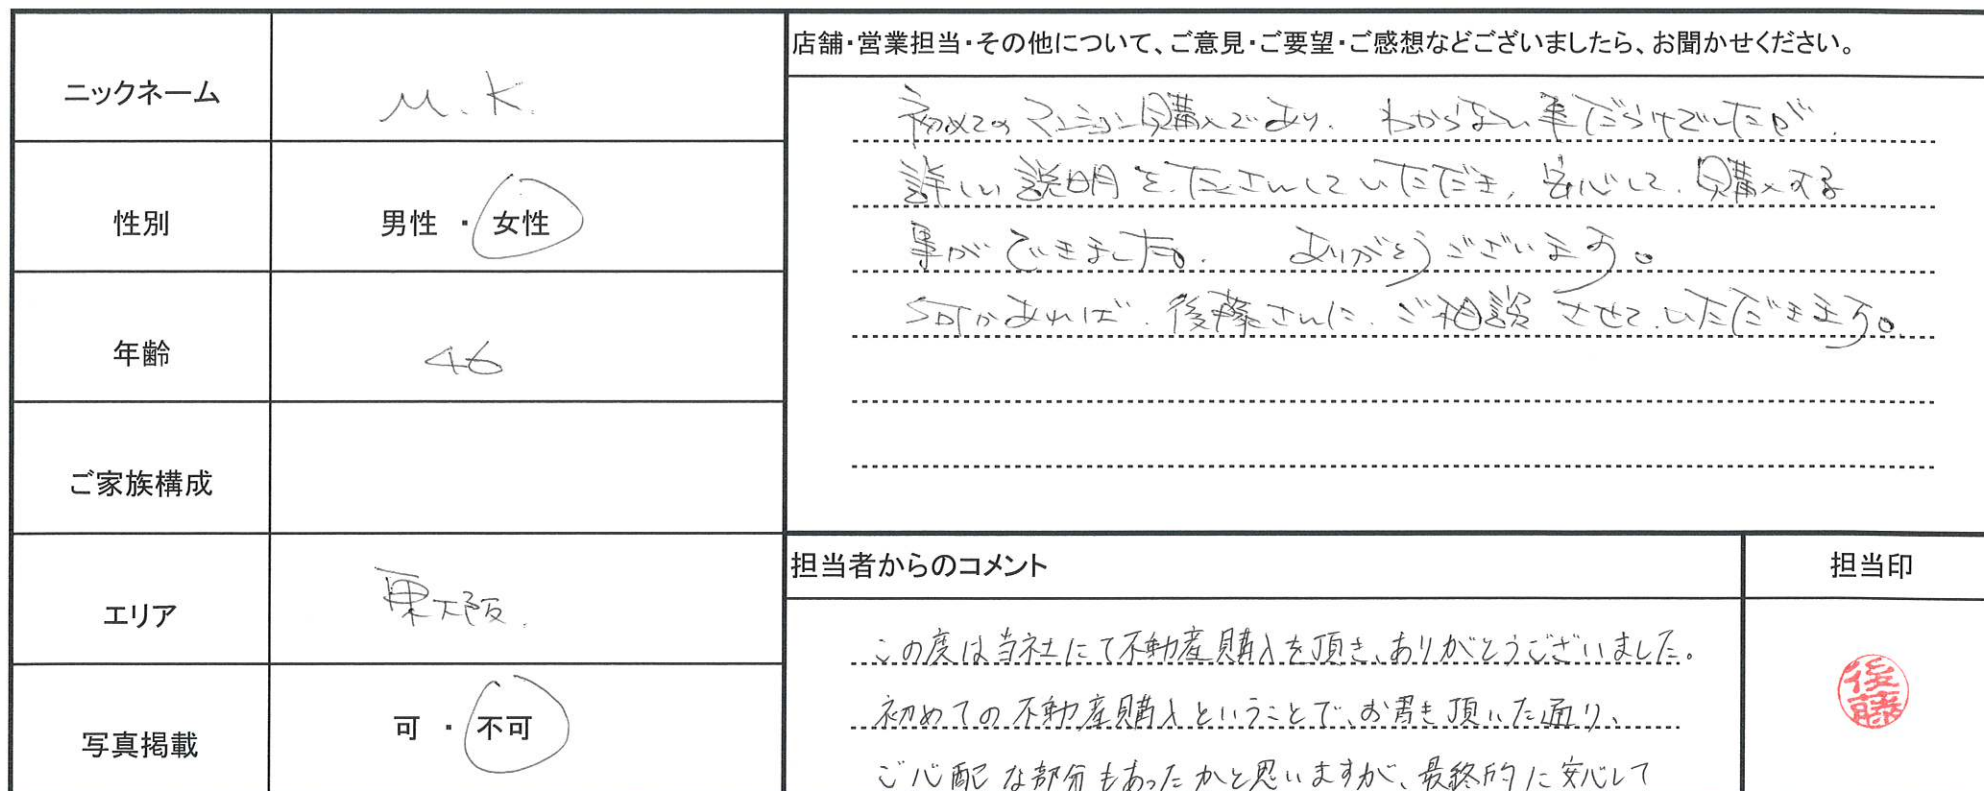 ニックネーム
M.K.
性別
男性 ・ 女性
年齢
46
ご家族構成
エリア
東大阪.
写真掲載
可 ・ 不可
店舗・営業担当・その他について、ご意見・ご要望・ご感想などございましたら、お聞かせください。
初めてのマンション購入であり、わからない事だらけでしたが、
詳しい説明をたくさんしていただき、安心して、購入する
事ができました。 ありがとうございます。
あれば、後藤さんに、ご相談させていただきます。
担当者からのコメント
この度は当社にて不動産購入を頂き、ありがとうございました。
初めての不動産購入ということで、お書き頂いた通り、
ご心配な部分もあったかと思いますが、最終的に安心して
担当印
後藤